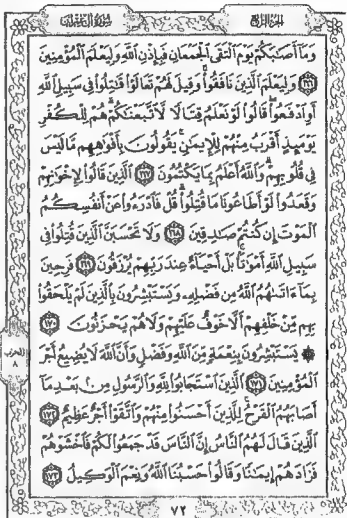 الجزء الرابع
سورة آل عمران
وَمَآ أَصَٰبَكُمْ يَوْمَ ٱلْتَقَى ٱلْجَمْعَانِ فَبِإِذْنِ ٱللَّهِ وَلِيَعْلَمَ ٱلْمُؤْمِنِينَ
١٦٦ وَلِيَعْلَمَ ٱلَّذِينَ نَافَقُوا۟ وَقِيلَ لَهُمْ تَعَالَوْا۟ قَٰتِلُوا۟ فِى سَبِيلِ ٱللَّهِ
أَوِ ٱدْفَعُوا۟ قَالُوا۟ لَوْ نَعْلَمُ قِتَالًا لَّٱتَّبَعْنَٰكُمْ هُمْ لِلْكُفْرِ
يَوْمَئِذٍ أَقْرَبُ مِنْهُمْ لِلْإِيمَٰنِ يَقُولُونَ بِأَفْوَٰهِهِم مَّا لَيْسَ
فِى قُلُوبِهِمْ وَٱللَّهُ أَعْلَمُ بِمَا يَكْتُمُونَ ١٦٧ ٱلَّذِينَ قَالُوا۟ لِإِخْوَٰنِهِمْ
وَقَعَدُوا۟ لَوْ أَطَاعُونَا مَا قُتِلُوا۟ قُلْ فَٱدْرَءُوا۟ عَنْ أَنفُسِكُمُ
ٱلْمَوْتَ إِن كُنتُمْ صَٰدِقِينَ ١٦٨ وَلَا تَحْسَبَنَّ ٱلَّذِينَ قُتِلُوا۟ فِى
سَبِيلِ ٱللَّهِ أَمْوَٰتًۢا بَلْ أَحْيَآءٌ عِندَ رَبِّهِمْ يُرْزَقُونَ ١٦٩ فَرِحِينَ
بِمَآ ءَاتَىٰهُمُ ٱللَّهُ مِن فَضْلِهِۦ وَيَسْتَبْشِرُونَ بِٱلَّذِينَ لَمْ يَلْحَقُوا۟
بِهِم مِّنْ خَلْفِهِمْ أَلَّا خَوْفٌ عَلَيْهِمْ وَلَا هُمْ يَحْزَنُونَ ١٧٠
۞ يَسْتَبْشِرُونَ بِنِعْمَةٍ مِّنَ ٱللَّهِ وَفَضْلٍ وَأَنَّ ٱللَّهَ لَا يُضِيعُ أَجْرَ
ٱلْمُؤْمِنِينَ ١٧١ ٱلَّذِينَ ٱسْتَجَابُوا۟ لِلَّهِ وَٱلرَّسُولِ مِنۢ بَعْدِ مَآ
أَصَابَهُمُ ٱلْقَرْحُ لِلَّذِينَ أَحْسَنُوا۟ مِنْهُمْ وَٱتَّقَوْا۟ أَجْرٌ عَظِيمٌ ١٧٢
ٱلَّذِينَ قَالَ لَهُمُ ٱلنَّاسُ إِنَّ ٱلنَّاسَ قَدْ جَمَعُوا۟ لَكُمْ فَٱخْشَوْهُمْ
فَزَادَهُمْ إِيمَٰنًا وَقَالُوا۟ حَسْبُنَا ٱللَّهُ وَنِعْمَ ٱلْوَكِيلُ ١٧٣
الحزب
٨
٧٢